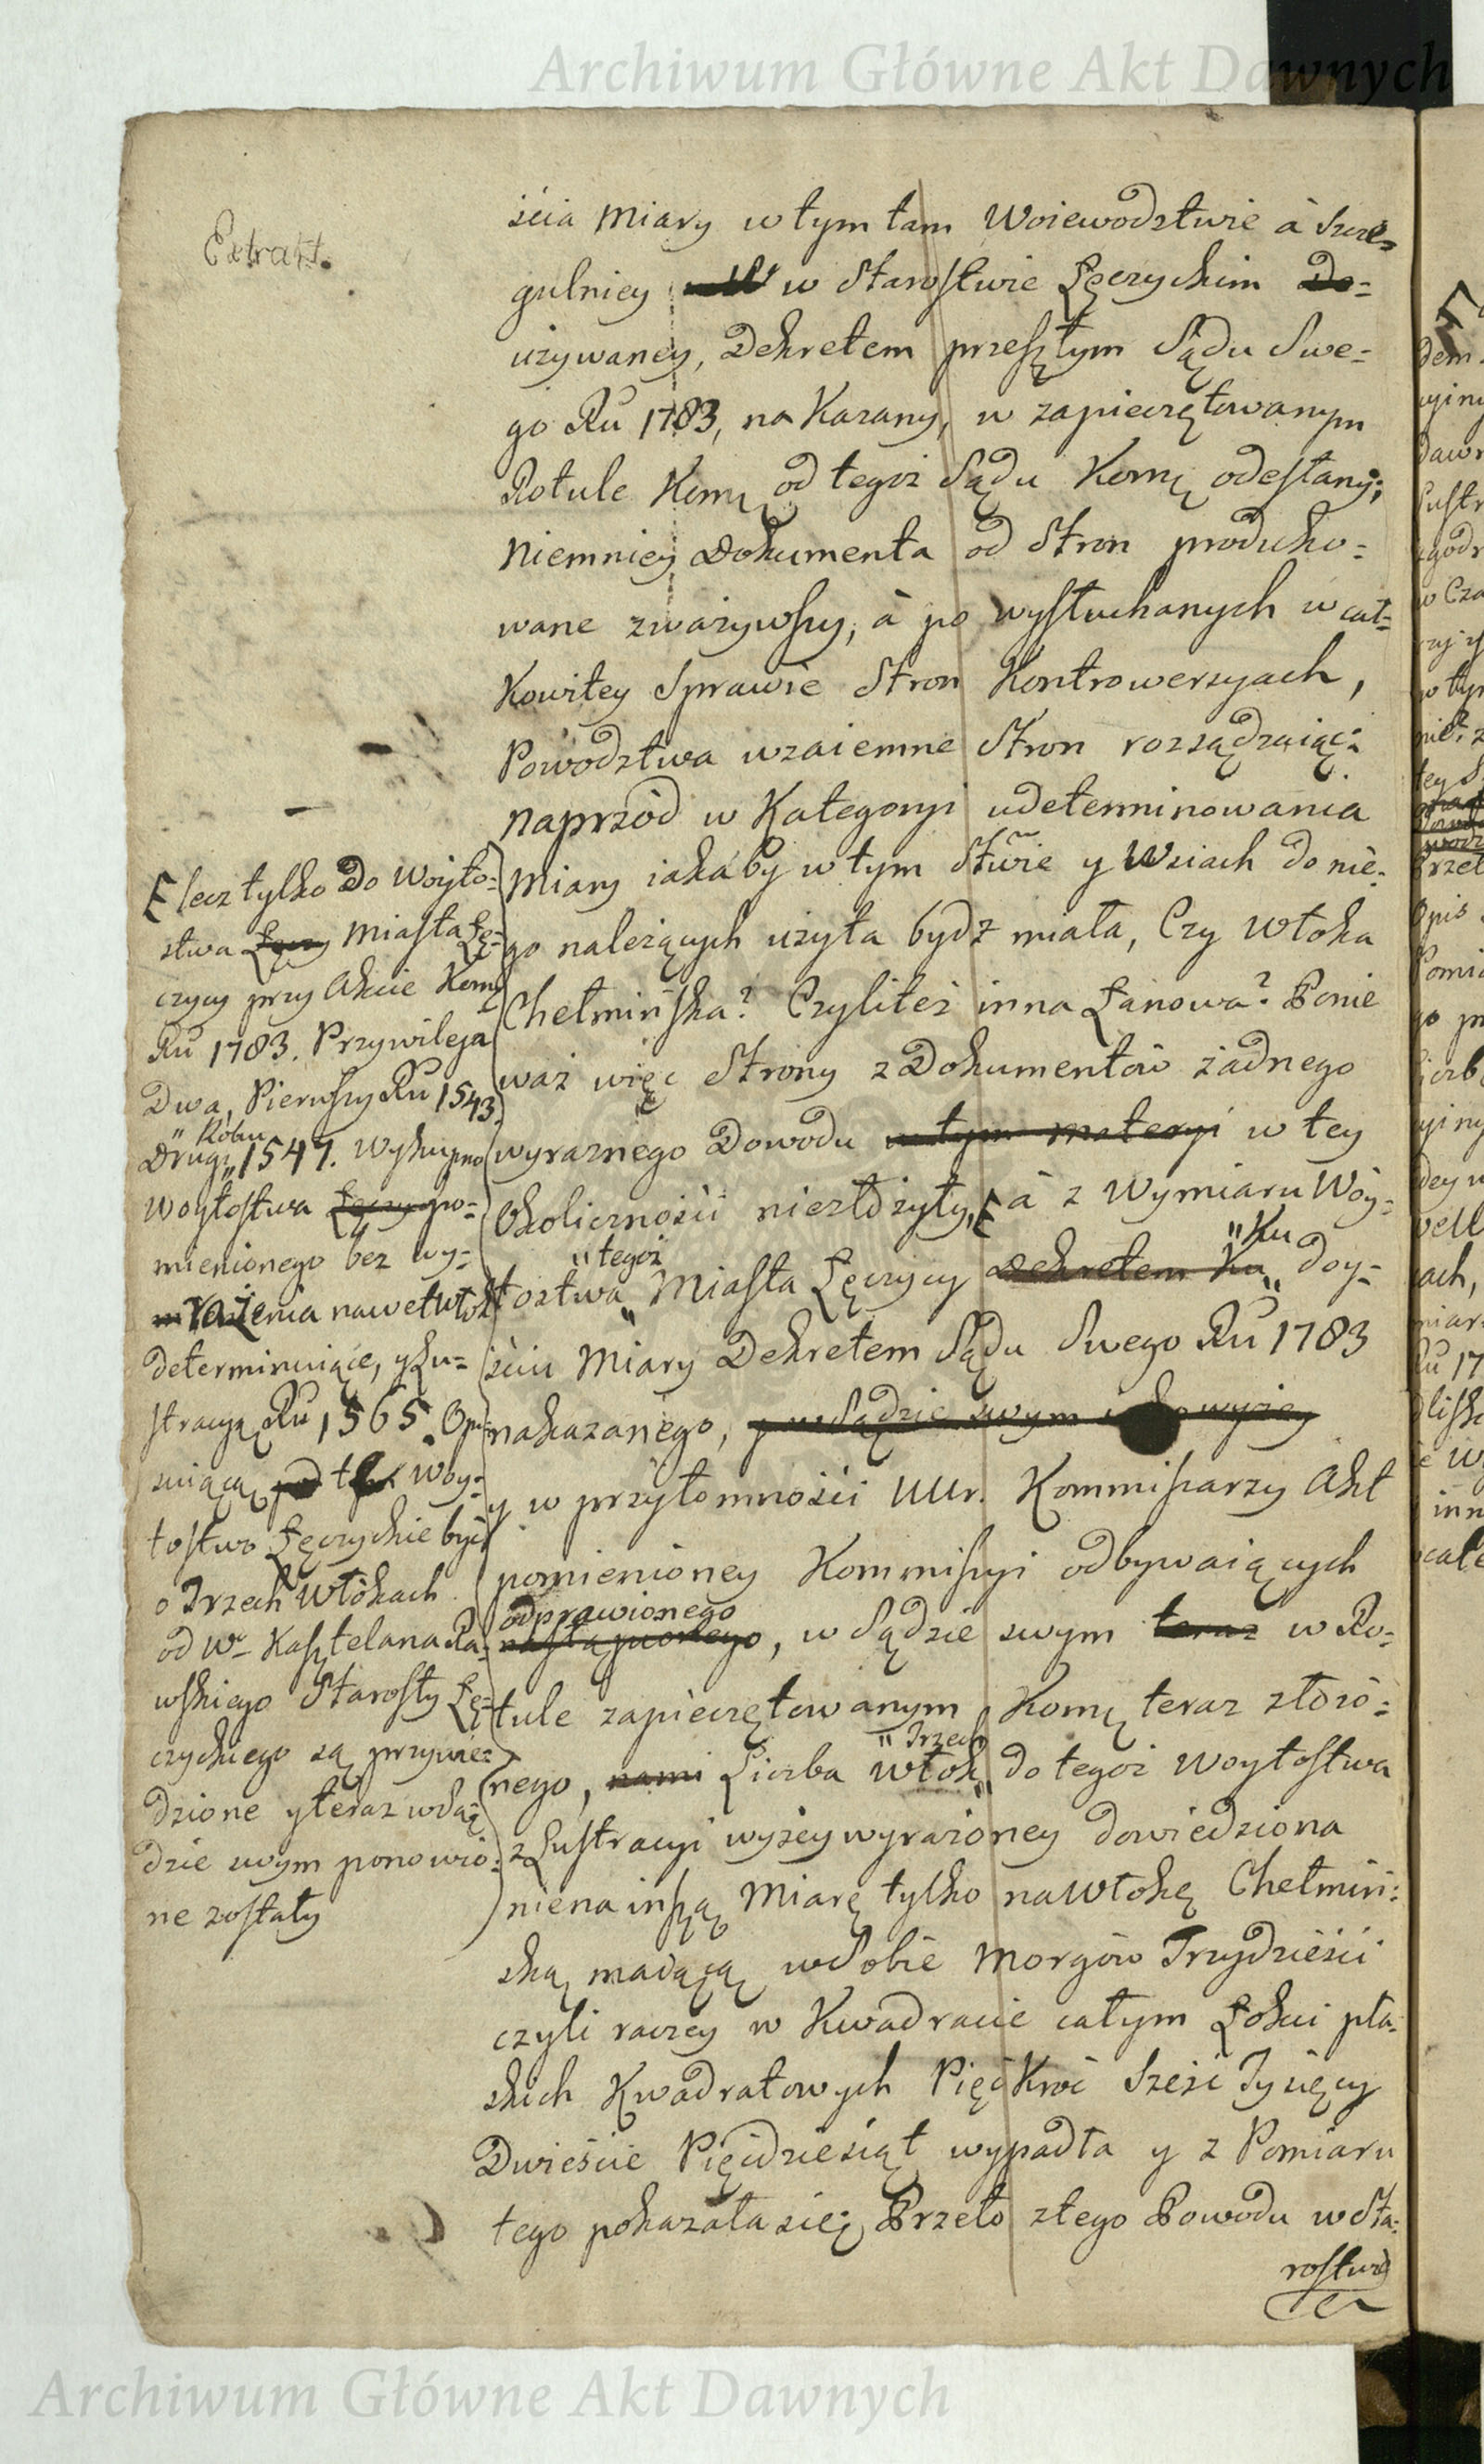 Archiwum Główne Akt Dawnych
Extrakt.
ścia Miary w tym tam Woiewodztwie à szcze=
gulniey w Starostwie Łęczyckim Do=
używaney, Dekretem przeszłym Sądu Swe=
go Ru 1783, na Kazany, w zapieczętowanym
Rotule Komą od tegoż Sądu Komą odesłany;
Niemniey Dokumenta od Stron produko=
wane zważywszy, à po wysłuchanych w cał=
Kowitey Sprawie Stron Kontrowersyach,
Powodztwa wzaiemne Stron rozsądzaiąc:
naprzód w Kategoryi udeterminowania
Miary iakaby w tym Stwie y Wsiach do nie=
go należących użyta bydź miała, Czy Włoka
Chełmińska? Czyliteż inna Łanowa? Ponie
waż więc Strony z Dokumentów żadnego
wyraznego Dowodu w tym materyi w tey
Okoliczności niezłożyły, à z Wymiaru Wóy=
"tegoż "Ku
tostwa" Miasta Łęczycy Dekretem Ku" doy=
ściu Miary Dekretem Sądu Swego Ru 1783
nakazanego, y w Sądzie swym wyżey
y w przytomności UUr. Kommissarzy Akt
pomienioney Kommissyi odbywaiących
odprawionego
nastąpionego, w Sądzie swym teraz w Ro=
tule zapieczętowanym Komą teraz złożo=
"Trzech
nego, nami Liczba Włok" do tegoż Woytostwa
z Lustracyi wyżey wyrażoney dowiedziona
niena inszą Miarę tylko na Włokę Chełmiń=
ską maiącą w Sobie Morgów Trzydzieści
czyli raczey w Kwadracie całym Łokci pła=
skich Kwadratowych Pięć Kroć Sześć Tysięcy
Dwieście Pięćdziesiąt wypadła y z Pomiaru
tego pokazała się; Przeto z tego Powodu w Sta=
rostwie
lecz tylko Do Woyto=
stwa Łęczy Miasta Łę=
czycy przy Akcie Komą
Ru 1783. Przywileja
Dwa, Pierwszy Ru 1543.
" Roku
Drugi" 1547. Wykupno
Woytostwa Łęczy po=
mienionego bez wy=
rażenia nawet Włok
determinuiące, y Lu=
stracyą Ru 1565. Opi=
suiącą pod tym Woy=
tostwo Łęczyckie być
o Trzech Włokach
od W. Kasztelana Ra=
wskiego Starosty Łę=
czyckiego są przywie=
dzione y teraz w Są=
dzie swym ponowio=
ne zostały
Archiwum Główne Akt Dawnych